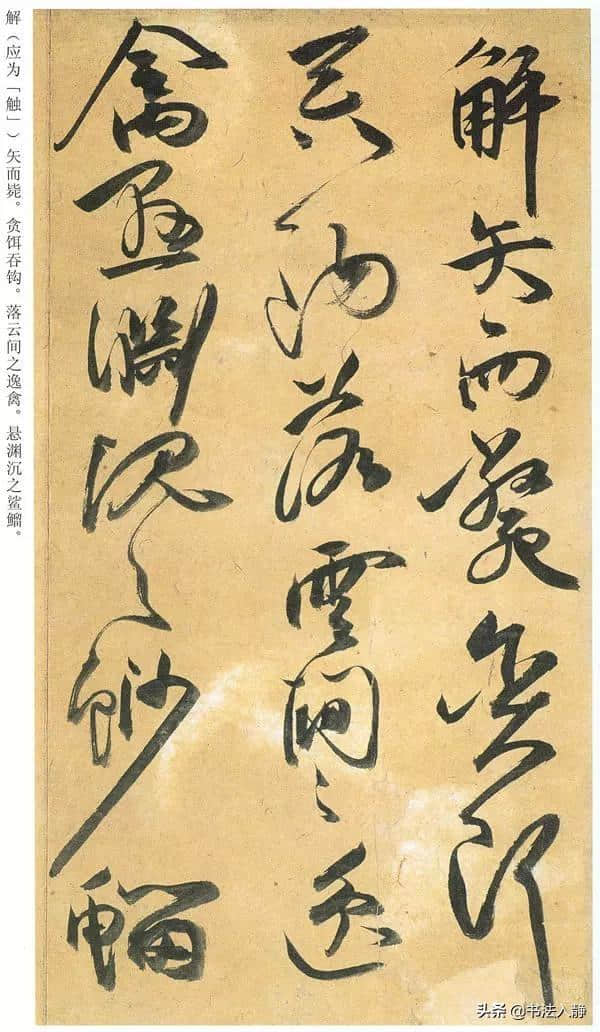 解矢而斃貪餌
吞鉤落雲間之逸
禽懸淵沈之魦鰡
解（应为「触」）矢而毙。贪饵吞钩。落云间之逸禽。悬渊沉之鲨鰡。
头条 @书法入静